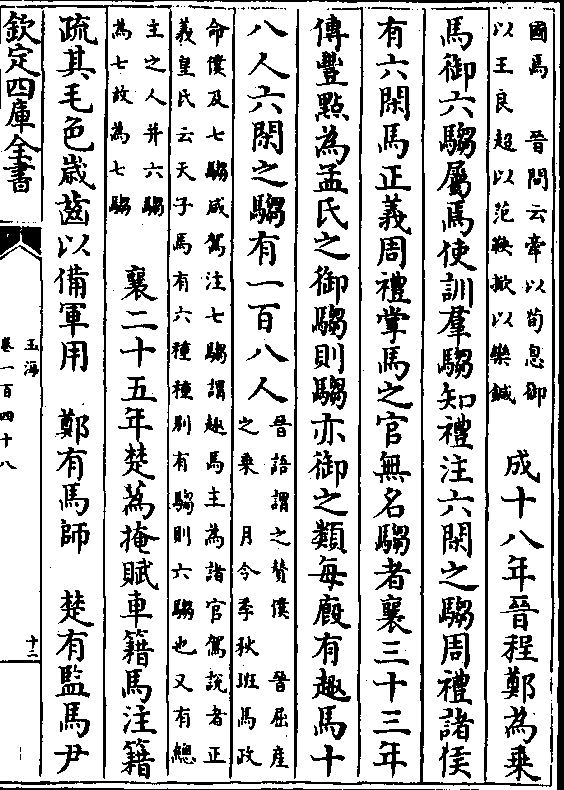 國馬　晉問云牽以荀息御
以王良超以范鞅掀以欒鍼
成十八年晉程鄭為乗
馬御六騶屬焉使訓羣騶知禮注六閑之騶周禮諸侯
有六閑馬正義周禮掌馬之官無名騶者襄三十三年
傳豐點為孟氏之御騶則騶亦御之類每廐有趣馬十
八人六閑之騶有一百八人
晉語謂之贊僕　晉屈産
之乗　月令季秋班馬政
命僕及七騶咸駕注七騶謂趣馬主為諸官駕說者正
義皇氏云天子馬有六種種别有騶則六騶也又有總
主之人并六騶
為七故為七騶
襄二十五年楚蒍掩賦車籍馬注籍
疏其毛色歳齒以備軍用　鄭有馬師　楚有監馬尹
欽定四庫全書
玉海
卷一百四十八
十二